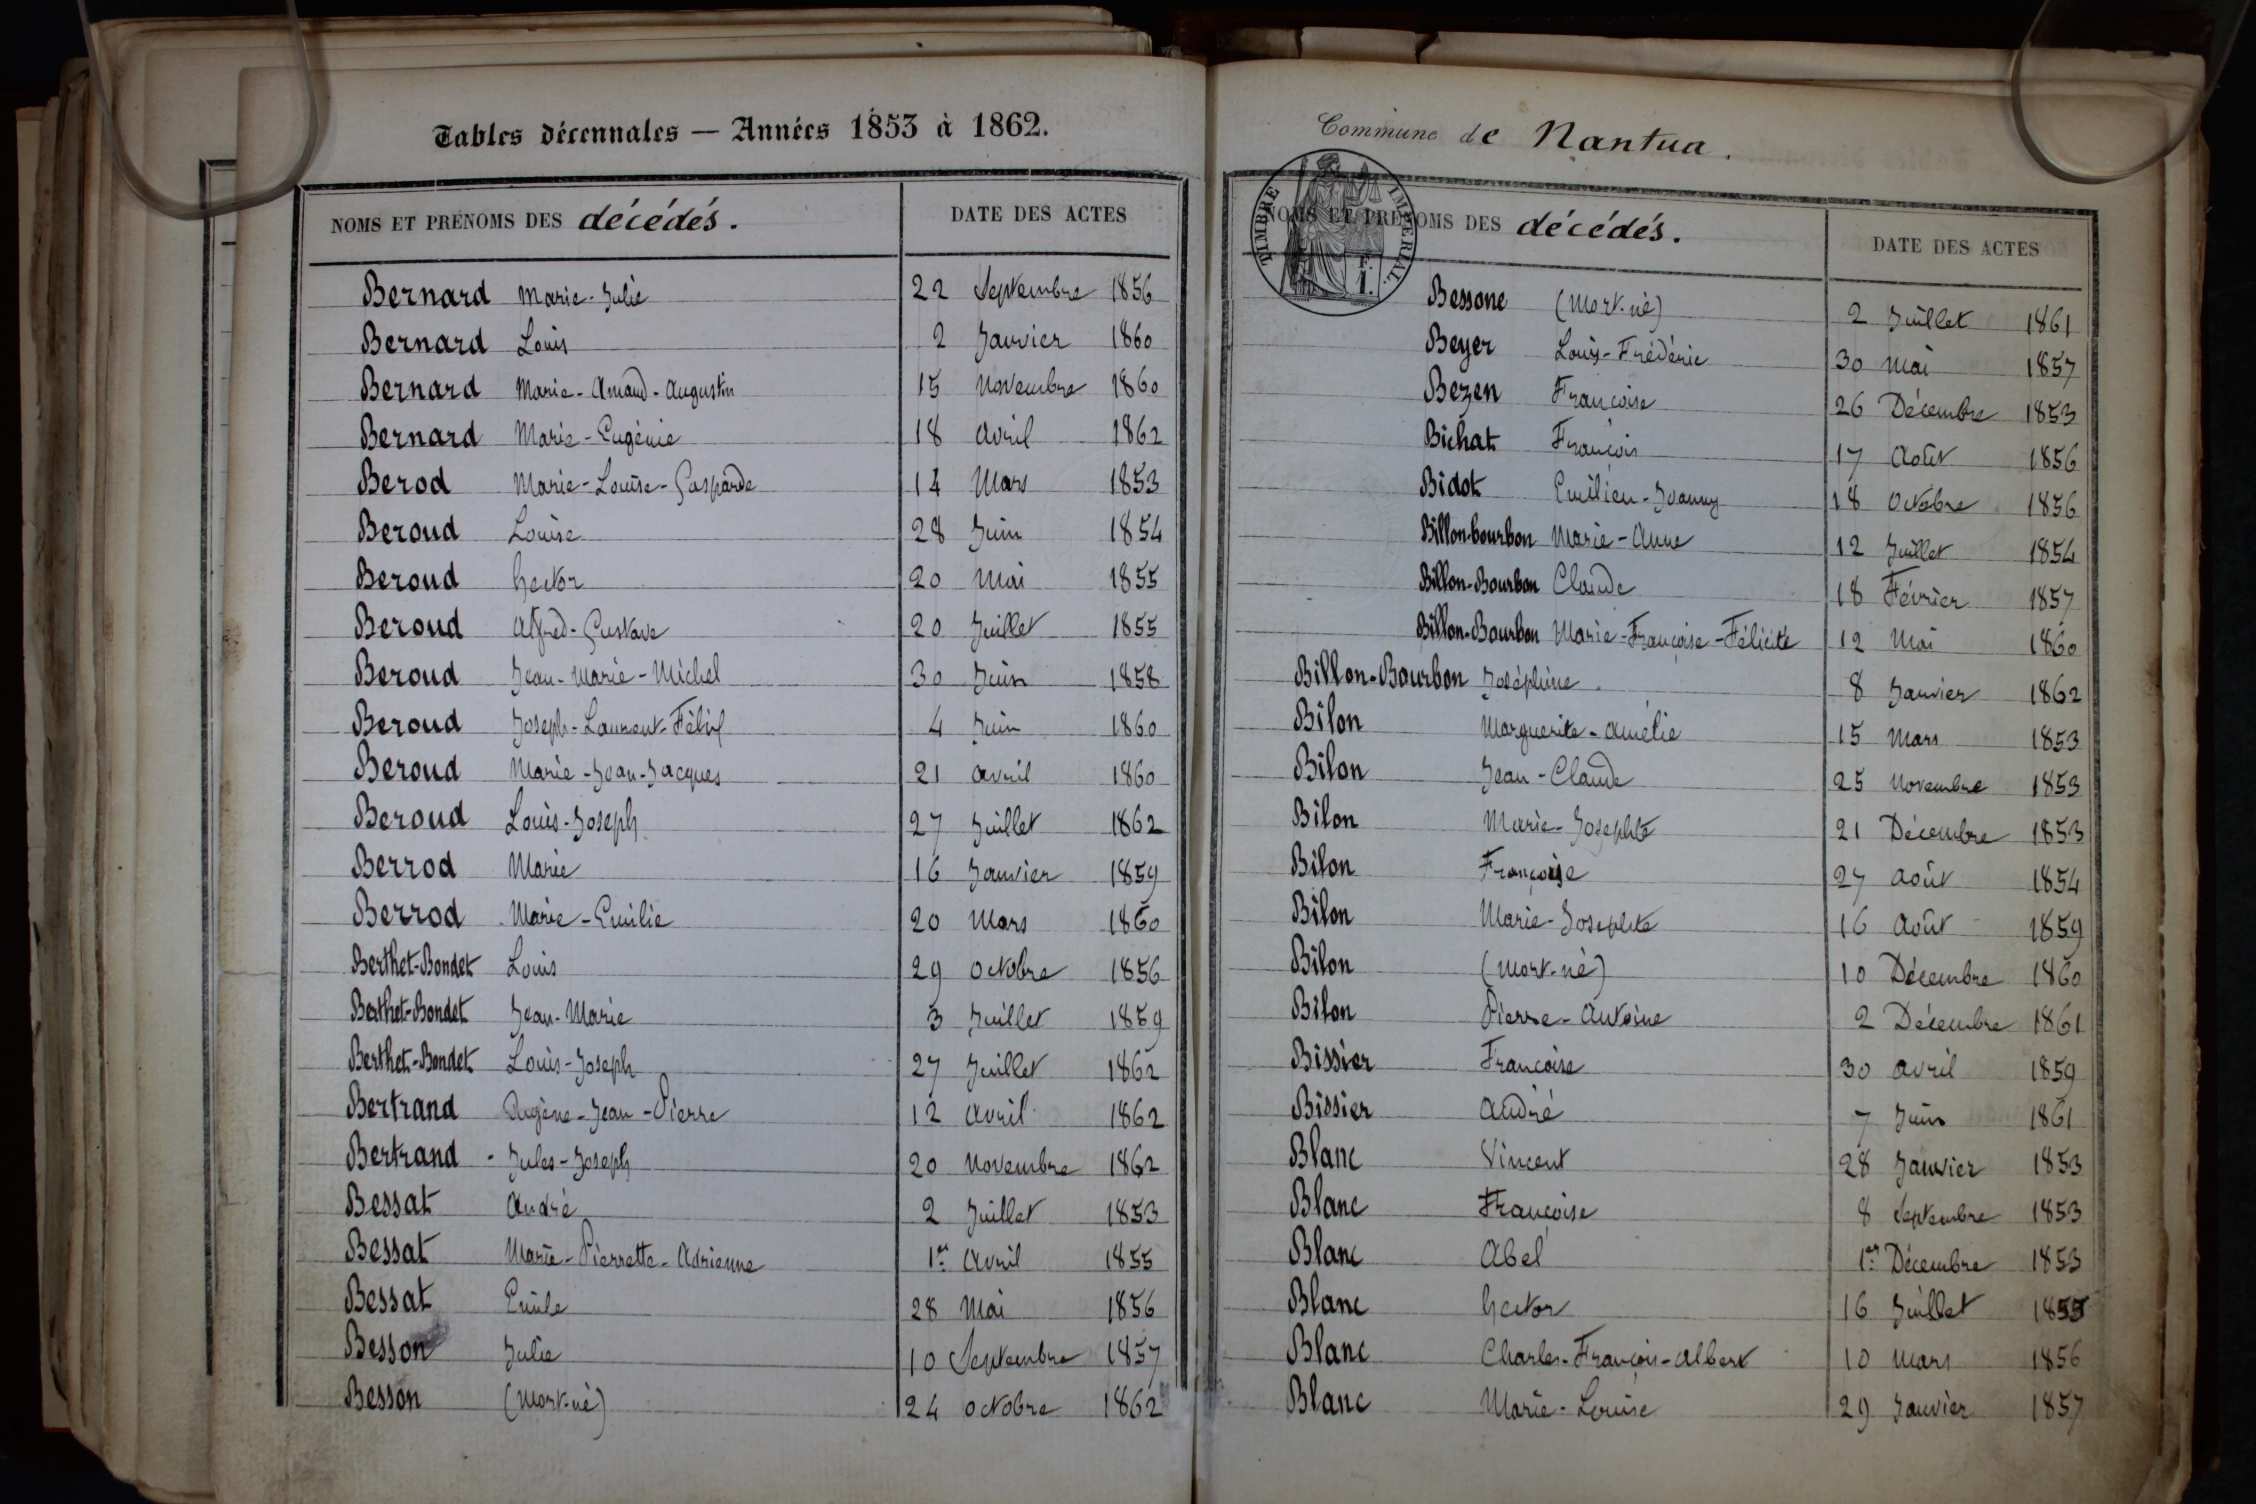 Tables décennales — Années 1853 à 1862.
NOMS ET PRÉNOMS DES décédés. DATE DES ACTES
Bernard Marie-Julie 22 Septembre 1856
Bernard Louis 2 Janvier 1860
Bernard Marie-Amand-Augustin 15 Novembre 1860
Bernard Marie-Eugénie 18 Avril 1862
Berod Marie-Louise-Gasparde 14 Mars 1853
Beroud Louise 28 Juin 1854
Beroud hector 20 Mai 1855
Beroud Alfred-Gustave 20 Juillet 1855
Beroud Jean-Marie-Michel 30 Juin 1858
Beroud Joseph-Laurent-Félix 4 Juin 1860
Beroud Marie-Jean-Jacques 21 avril 1860
Beroud Louis-Joseph 27 Juillet 1862
Berrod Marie 16 Janvier 1859
Berrod Marie-Emilie 20 Mars 1860
Berthet-Bondet Louis 29 octobre 1856
Berthet-Bondet Jean-Marie 3 Juillet 1859
Berthet-Bondet Louis-Joseph 27 Juillet 1862
Bertrand Eugène-Jean-Pierre 12 avril 1862
Bertrand Jules-Joseph 20 Novembre 1862
Bessat André 2 Juillet 1853
Bessat Marie-Pierrette-Adrienne 1er Avril 1855
Bessat Emile 28 Mai 1856
Besson Julie 10 Septembre 1857
Besson (Mort-né) 24 octobre 1862
Commune de Nantua.
TIMBRE IMPÉRIAL
F.
1.
NOMS ET PRÉNOMS DES décédés. DATE DES ACTES
Bessone (Mort-né) 2 Juillet 1861
Beyer Louis-Frédéric 30 Mai 1857
Bezen Françoise 26 Décembre 1853
Bichat François 17 Août 1856
Bidot Emilien-Joanny 18 octobre 1856
Billon-bourbon Marie-Anne 12 Juillet 1854
Billon-Bourbon Claude 18 Février 1857
Billon-Bourbon Marie-Françoise-Félicité 12 Mai 1860
Billon-Bourbon Joséphine 8 Janvier 1862
Bilon Marguerite-Amélie 15 Mars 1853
Bilon Jean-Claude 25 Novembre 1853
Bilon Marie-Josephte 21 Décembre 1853
Bilon Françoise 27 août 1854
Bilon Marie-Josephte 16 Août 1859
Bilon (Mort-né) 10 Décembre 1860
Bilon Pierre-Antoine 2 Décembre 1861
Bissier Françoise 30 avril 1859
Bissier André 7 Juin 1861
Blanc Vincent 28 Janvier 1853
Blanc Françoise 8 Septembre 1853
Blanc Abel 1er Décembre 1853
Blanc hector 16 Juillet 1855
Blanc Charles-François-Albert 10 Mars 1856
Blanc Marie-Louise 29 Janvier 1857